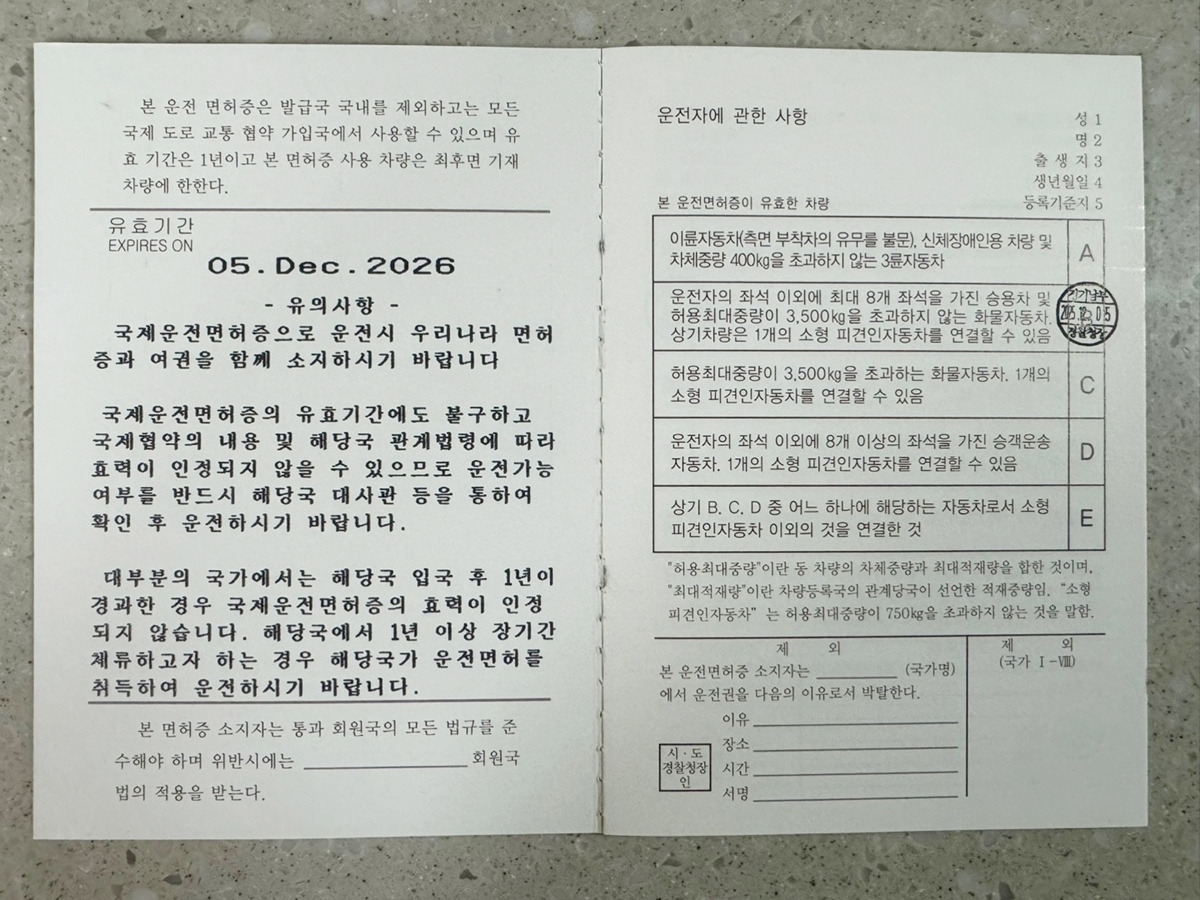 본 운전 면허증은 발급국 국내를 제외하고는 모든
국제 도로 교통 협약 가입국에서 사용할 수 있으며 유
효 기간은 1년이고 본 면허증 사용 차량은 최후면 기재
차량에 한한다.
유효기간
EXPIRES ON
05.Dec.2026
- 유의사항 -
국제운전면허증으로 운전시 우리나라 면허
증과 여권을 함께 소지하시기 바랍니다
국제운전면허증의 유효기간에도 불구하고
국제협약의 내용 및 해당국 관계법령에 따라
효력이 인정되지 않을 수 있으므로 운전가능
여부를 반드시 해당국 대사관 등을 통하여
확인 후 운전하시기 바랍니다.
대부분의 국가에서는 해당국 입국 후 1년이
경과한 경우 국제운전면허증의 효력이 인정
되지 않습니다. 해당국에서 1년 이상 장기간
체류하고자 하는 경우 해당국가 운전면허를
취득하여 운전하시기 바랍니다.
본 면허증 소지자는 통과 회원국의 모든 법규를 준
수해야 하며 위반시에는 회원국
법의 적용을 받는다.
운전자에 관한 사항
성 1
명 2
출 생 지 3
생년월일 4
등록기준지 5
본 운전면허증이 유효한 차량
이륜자동차(측면 부착차의 유무를 불문), 신체장애인용 차량 및
차체중량 400kg을 초과하지 않는 3륜자동차
A
운전자의 좌석 이외에 최대 8개 좌석을 가진 승용차 및
허용최대중량이 3,500kg을 초과하지 않는 화물자동차.
상기차량은 1개의 소형 피견인자동차를 연결할 수 있음
경기남부
경찰청장
허용최대중량이 3,500kg을 초과하는 화물자동차. 1개의
소형 피견인자동차를 연결할 수 있음
C
운전자의 좌석 이외에 8개 이상의 좌석을 가진 승객운송
자동차. 1개의 소형 피견인자동차를 연결할 수 있음
D
상기 B. C. D 중 어느 하나에 해당하는 자동차로서 소형
피견인자동차 이외의 것을 연결한 것
E
"허용최대중량"이란 동 차량의 차체중량과 최대적재량을 합한 것이며,
"최대적재량"이란 차량등록국의 관계당국이 선언한 적재중량임. "소형
피견인자동차" 는 허용최대중량이 750kg을 초과하지 않는 것을 말함.
제 외
본 운전면허증 소지자는 (국가명)
에서 운전권을 다음의 이유로서 박탈한다.
이유
장소
시간
서명
시·도
경찰청장
인
제 외
(국가 I-VIII)